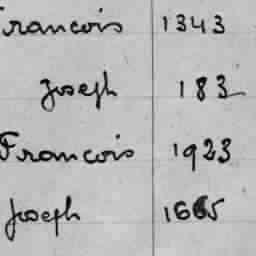 Francois 1343
Joseph 183
Francois 1923
Joseph 1665